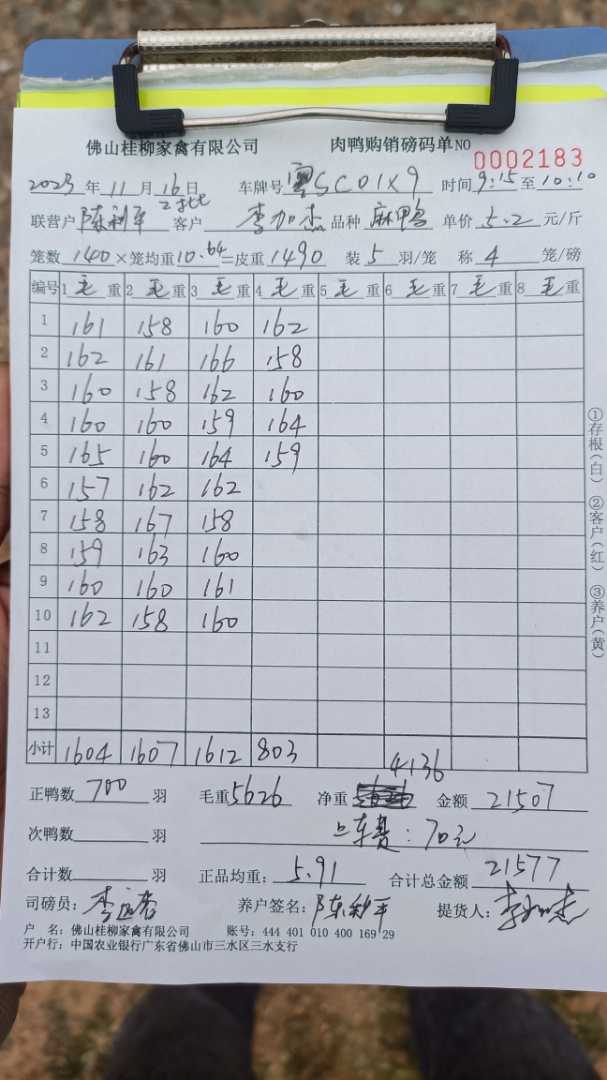 佛山桂柳家禽有限公司 肉鸭购销磅码单 NO 0002183
2023年 11月 16日 车牌号 粤SC01X9 时间 9:15 至 10:10
联营户 陈利平 2批 客户 李加杰 品种 麻鸭 单价 5.2 元/斤
笼数 140 × 笼均重 10.64 = 皮重 1490 装 5 羽/笼 称 4 笼/磅
编号 1 毛重 2 毛重 3 毛重 4 毛重 5 毛重 6 毛重 7 毛重 8 毛重
1 161 158 160 162
2 162 161 166 158
3 160 158 162 160
4 160 160 159 164
5 165 160 164 159
6 157 162 162
7 158 167 158
8 159 163 160
9 160 160 161
10 162 158 160
11
12
13
小计 1604 1607 1612 803
4136
正鸭数 700 羽 毛重 5626 净重 金额 21507
次鸭数 羽 上车费:70元
合计数 羽 正品均重: 5.91 合计总金额 21577
司磅员: 养户签名: 陈利平 提货人: 李加杰
户 名: 佛山桂柳家禽有限公司 账号: 444 401 010 400 169 29
开户行: 中国农业银行广东省佛山市三水区三水支行
①存根(白) ②客户(红) ③养户(黄)